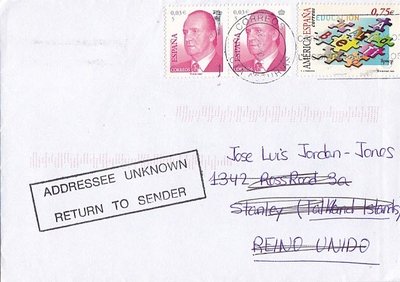 0,03€
ESPAÑA
CORREOS
0,03€
ESPAÑA
CORREOS
0,75€
EDUCACIÓN
AMÉRICA-ESPAÑA
correos
ADDRESSEE UNKNOWN
RETURN TO SENDER
Jose Luis Jordan-Jones
1342 Ross Road 3a
Stanley (Falkland Islands)
REINO UNIDO